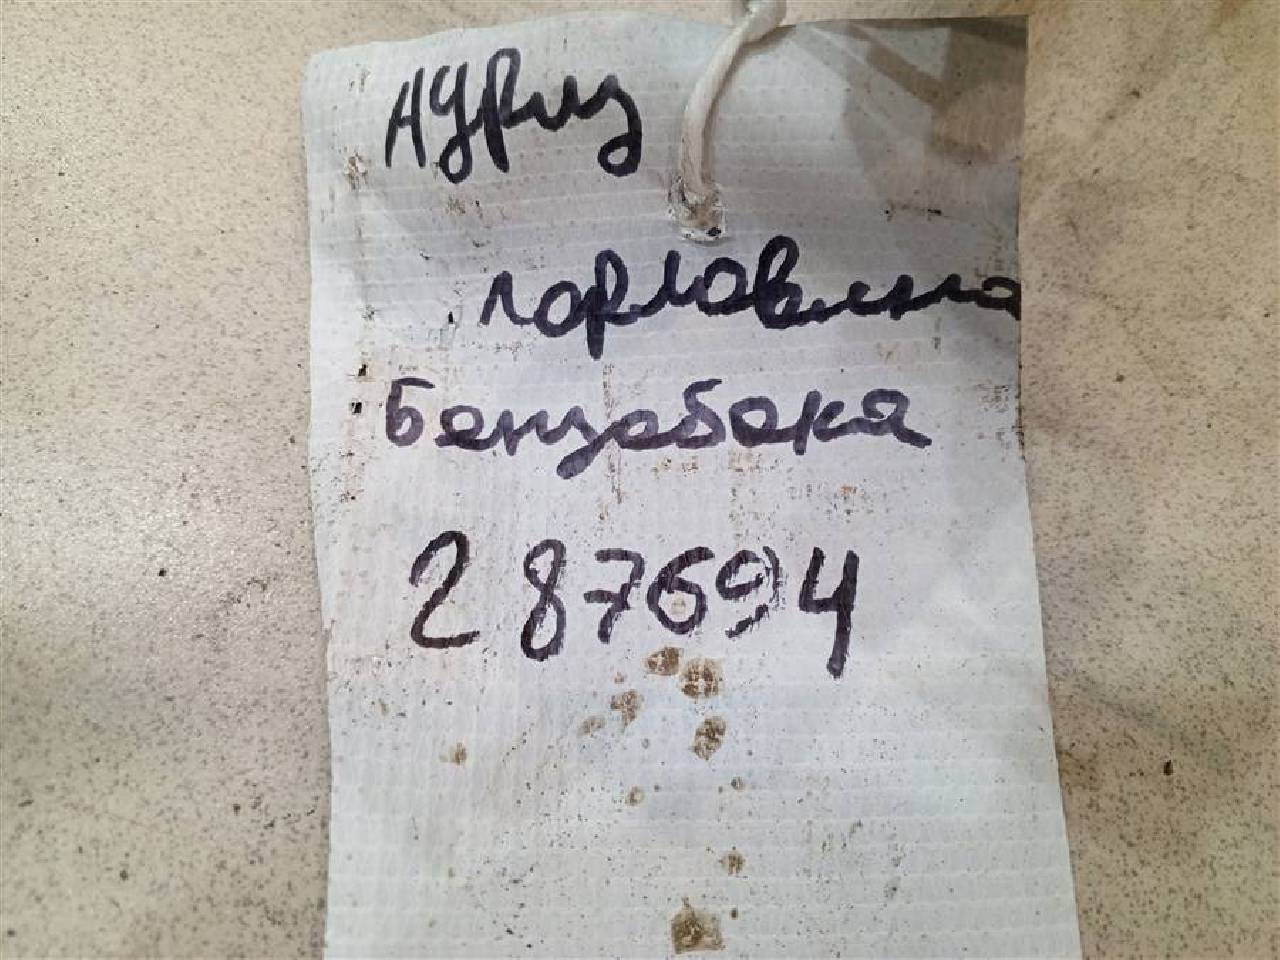 Аурис
горловина
Бензобака
287694